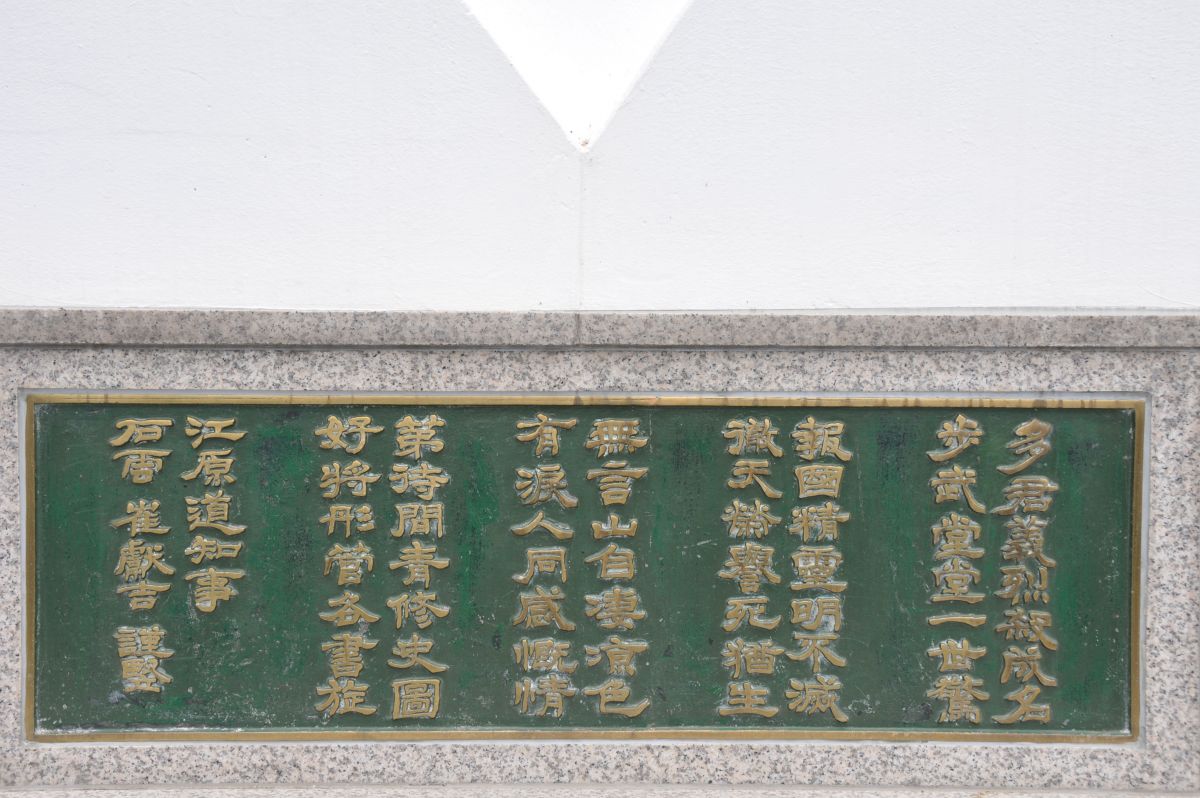 多君義烈殺成名
步武堂堂一世驚
報國精靈明不滅
徹天榮譽死猶生
無言山自凄凉色
有淚人同感慨情
第待間青修史圖
好將彤管各書旋
江原道知事
石雲 崔獻吉 謹